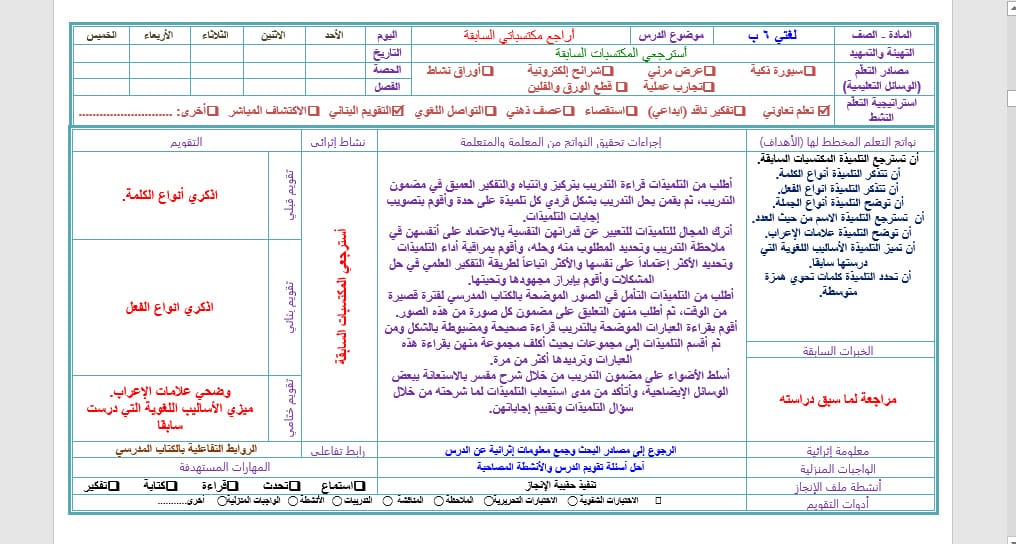 المادة - الصف لغتي ٦ ب موضوع الدرس أراجع مكتسباتي السابقة اليوم الأحد الاثنين الثلاثاء الأربعاء الخميس
التهيئة والتمهيد أسترجعي المكتسبات السابقة التاريخ
مصادر التعلّم (الوسائل التعليمية) سبورة ذكية عرض مرئي شرائح إلكترونية أوراق نشاط الحصة
تجارب عملية قطع الورق والفلين الفصل
استراتيجية التعلّم النشط تعلم تعاوني تفكير ناقد (ابداعي) استقصاء عصف ذهني التواصل اللغوي التقويم البنائي الاكتشاف المباشر أخرى: ............................
نواتج التعلم المخطط لها (الأهداف) إجراءات تحقيق النواتج من المعلمة والمتعلمة نشاط إثرائي التقويم
أن تسترجع التلميذة المكتسبات السابقة.
أن تتذكر التلميذة أنواع الكلمة.
أن تتذكر التلميذة انواع الفعل.
أن توضح التلميذة أنواع الجملة.
أن تسترجع التلميذة الاسم من حيث العدد.
أن توضح التلميذة علامات الإعراب.
أن تميز التلميذة الأساليب اللغوية التي
درستها سابقا.
أن تحدد التلميذة كلمات تحوي همزة
متوسطة.
الخبرات السابقة
مراجعة لما سبق دراسته
أطلب من التلميذات قراءة التدريب بتركيز وانتباه والتفكير العميق في مضمون
التدريب، ثم يقمن بحل التدريب بشكل فردي كل تلميذة على حدة وأقوم بتصويب
إجابات التلميذات.
أترك المجال للتلميذات للتعبير عن قدراتهن النفسية بالاعتماد على أنفسهن في
ملاحظة التدريب وتحديد المطلوب منه وحله، وأقوم بمراقبة أداء التلميذات
وتحديد الأكثر إعتماداً على نفسها والأكثر اتباعاً لطريقة التفكير العلمي في حل
المشكلات وأقوم بإبراز مجهودها وتحيتها.
أطلب من التلميذات التأمل في الصور الموضحة بالكتاب المدرسي لفترة قصيرة
من الوقت، ثم أطلب منهن التعليق على مضمون كل صورة من هذه الصور.
أقوم بقراءة العبارات الموضحة بالتدريب قراءة صحيحة ومضبوطة بالشكل ومن
ثم أقسم التلميذات إلى مجموعات بحيث أكلف مجموعة منهن بقراءة هذه
العبارات وترديدها أكثر من مرة.
أسلط الأضواء على مضمون التدريب من خلال شرح مفسر بالاستعانة ببعض
الوسائل الإيضاحية، وأتأكد من مدى استيعاب التلميذات لما شرحته من خلال
سؤال التلميذات وتقييم إجاباتهن.
أسترجعي المكتسبات السابقة
تقويم قبلي
اذكري أنواع الكلمة.
تقويم بنائي
اذكري انواع الفعل
تقويم ختامي
وضحي علامات الإعراب.
ميزي الأساليب اللغوية التي درست
سابقا
معلومة إثرائية الرجوع إلى مصادر البحث وجمع معلومات إثرائية عن الدرس رابط تفاعلي الروابط التفاعلية بالكتاب المدرسي
الواجبات المنزلية أحل أسئلة تقويم الدرس والأنشطة المصاحبة المهارات المستهدفة
أنشطة ملف الإنجاز تنفيذ حقيبة الإنجاز استماع تحدث قراءة كتابة تفكير
أدوات التقويم الاختبارات الشفوية الاختبارات التحريرية الملاحظة المناقشة التدريبات الأنشطة الواجبات المنزلية أخرى...........